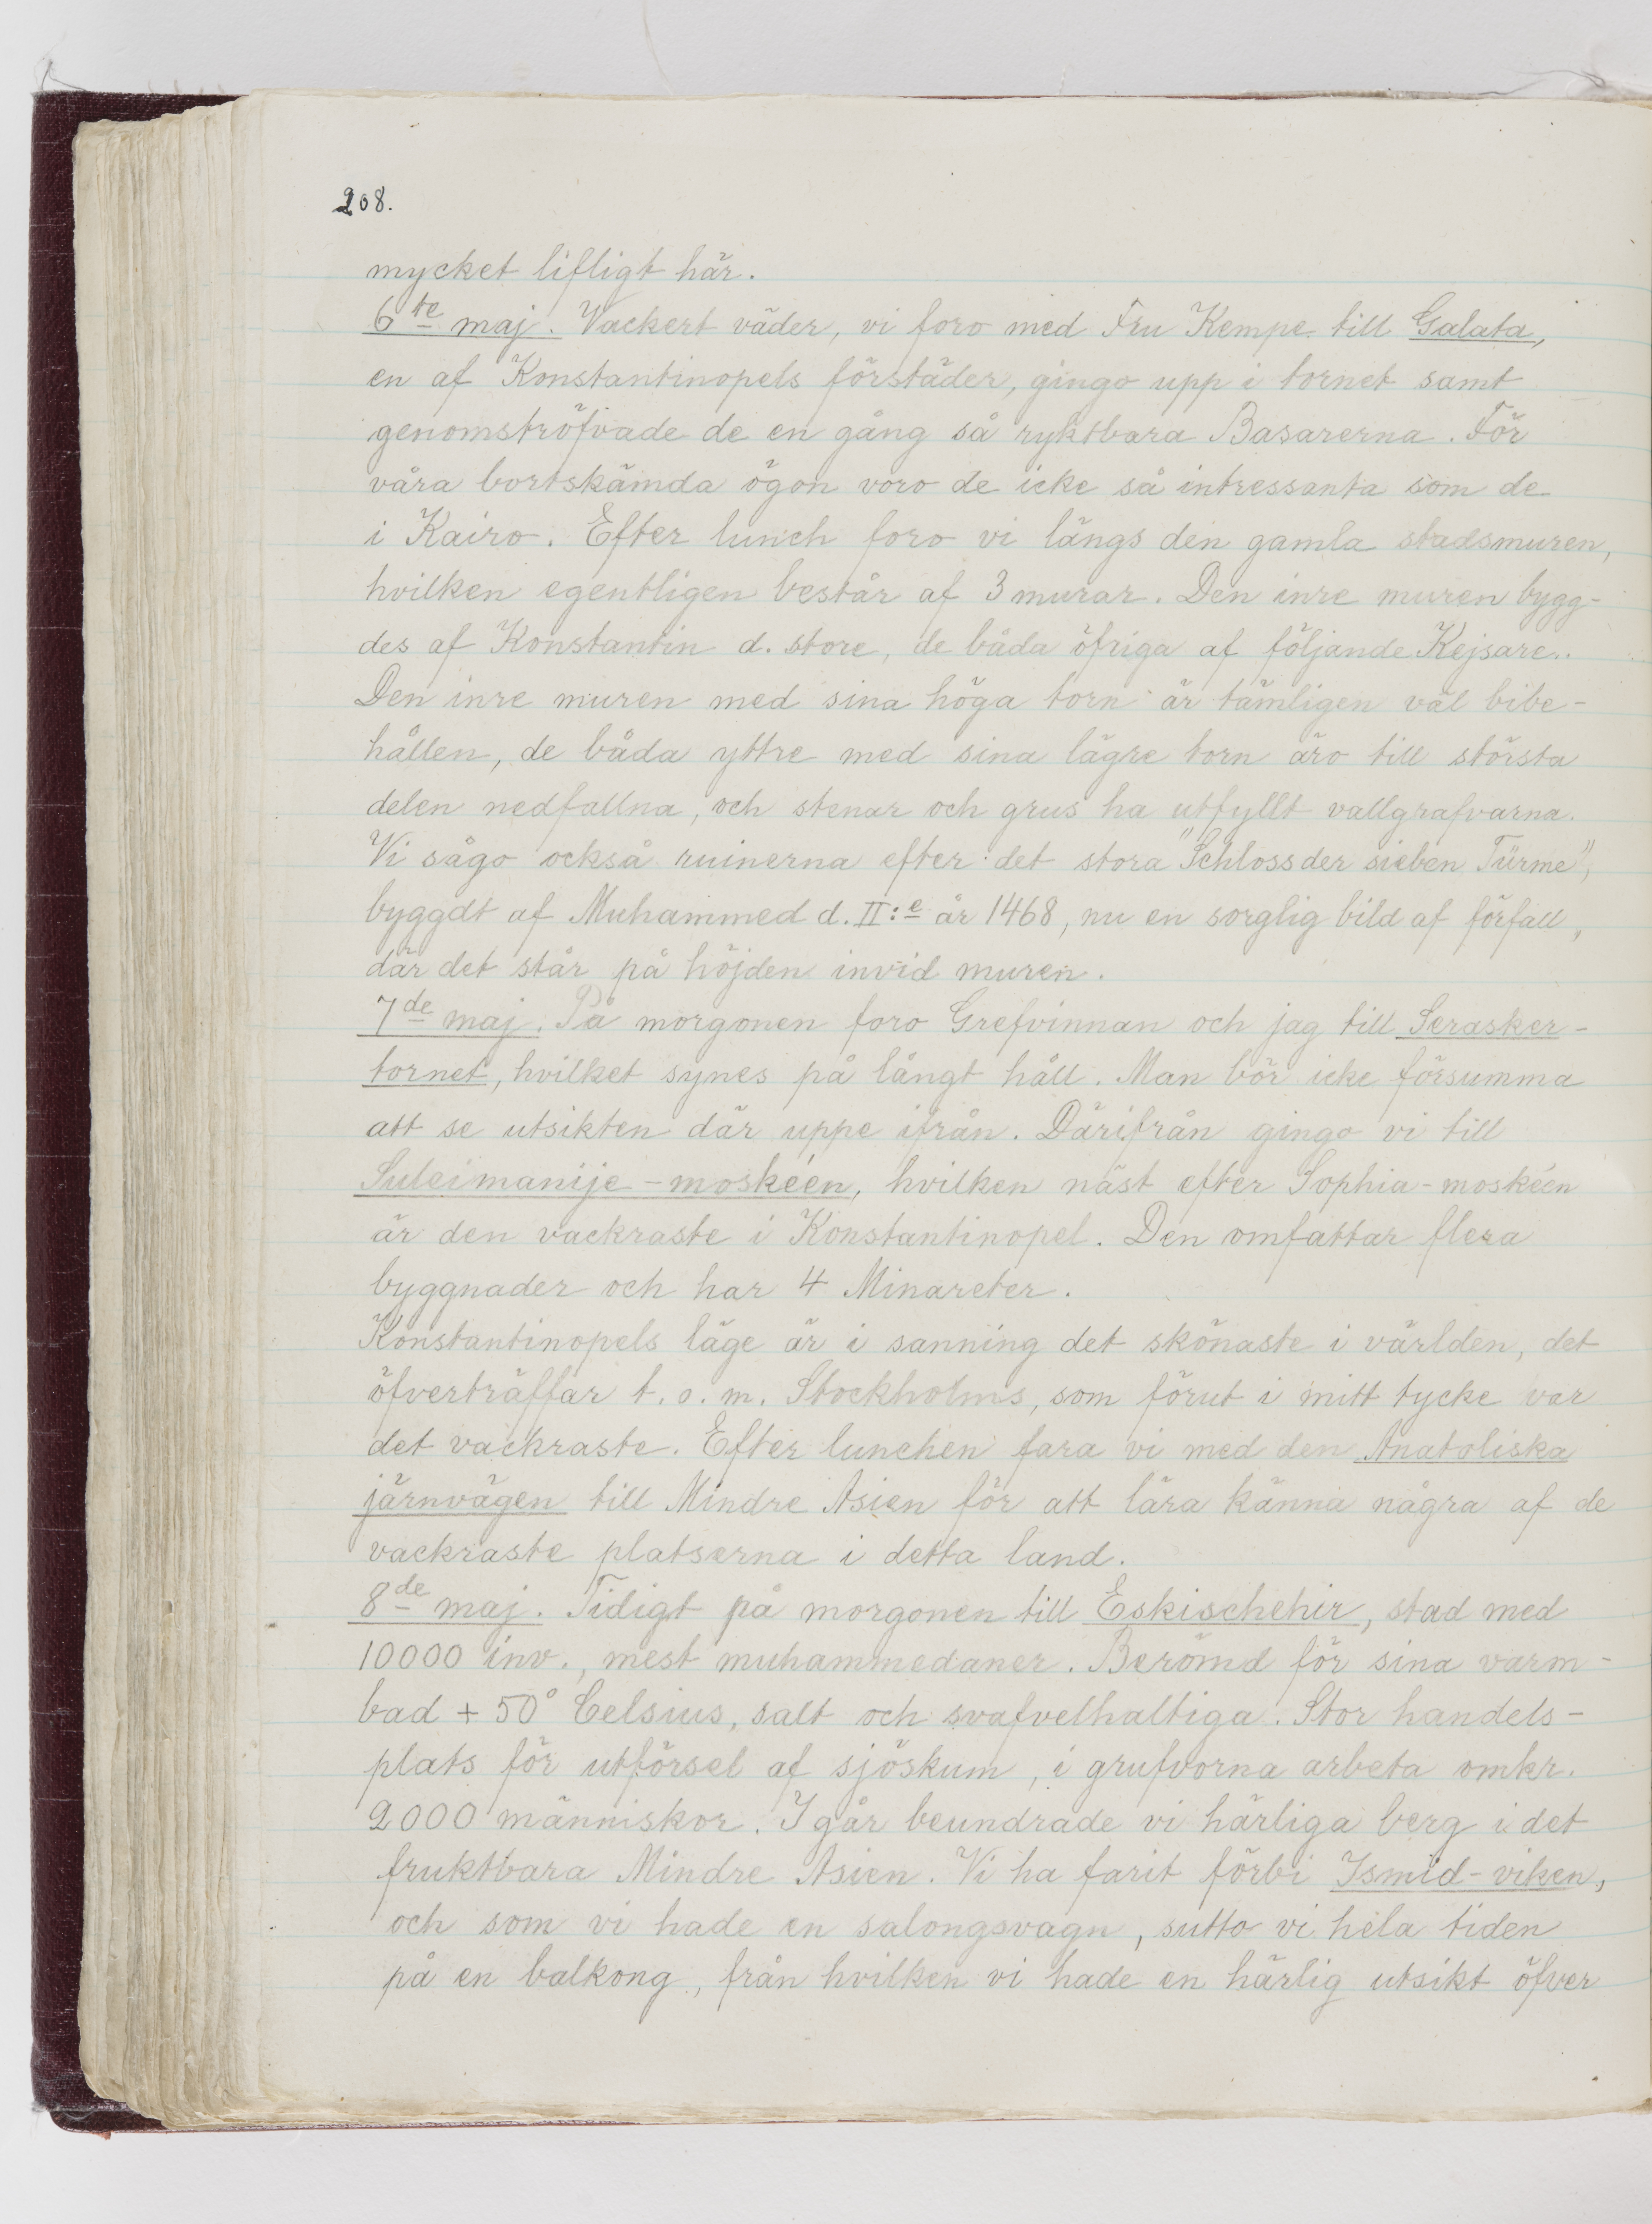 208.
mycket lifligt här.
6te maj. Vackert väder, vi foro med Fru Kempe till Galata,
en af Konstantinopels förstäder, gingo upp i tornet samt
genomströfvade de en gång så ryktbara Basarerna. För
våra bortskämda ögon voro de icke så intressanta som de
i Kairo. Efter lunch foro vi längs den gamla stadsmuren,
hvilken egentligen består af 3 murar. Den inre muren bygg-
des af Konstantin d. store, de båda öfriga af följande Kejsare.
Den inre muren med sina höga torn är tämligen väl bibe-
hållen, de båda yttre med sina lägre torn äro till största
delen nedfallna, och stenar och grus ha utfyllt vallgrafvarna.
Vi sågo också ruinerna efter det stora "Schloss der sieben Türme",
byggdt af Muhammed d. II:e år 1468, nu en sorglig bild af förfall,
där det står på höjden invid muren.
7de maj. På morgonen foro Grefvinnan och jag till Serasker-
tornet, hvilket synes på långt håll. Man bör icke försumma
att se utsikten där uppe ifrån. Därifrån gingo vi till
Suleimanije-moskéen, hvilken näst efter Sophia-moskéen
är den vackraste i Konstantinopel. Den omfattar flera
byggnader och har 4 Minareter.
Konstantinopels läge är i sanning det skönaste i världen, det
öfverträffar t.o.m. Stockholms, som förut i mitt tycke var
det vackraste. Efter lunchen fara vi med den Anatoliska
järnvägen till Mindre Asien för att lära känna några af de
vackraste platserna i detta land.
8de maj. Tidigt på morgonen till Eskischehir, stad med
10000 inv., mest muhammedaner. Berömd för sina varm-
bad + 50° Celsius, salt och svafvelhaltiga. Stor handels-
plats för utförsel af sjöskum, i grufvorna arbeta omkr.
2000 människor. I går beundrade vi härliga berg i det
fruktbara Mindre Asien. Vi ha farit förbi Ismid-viken,
och som vi hade en salongsvagn, sutto vi hela tiden
på en balkong, från hvilken vi hade en härlig utsikt öfver